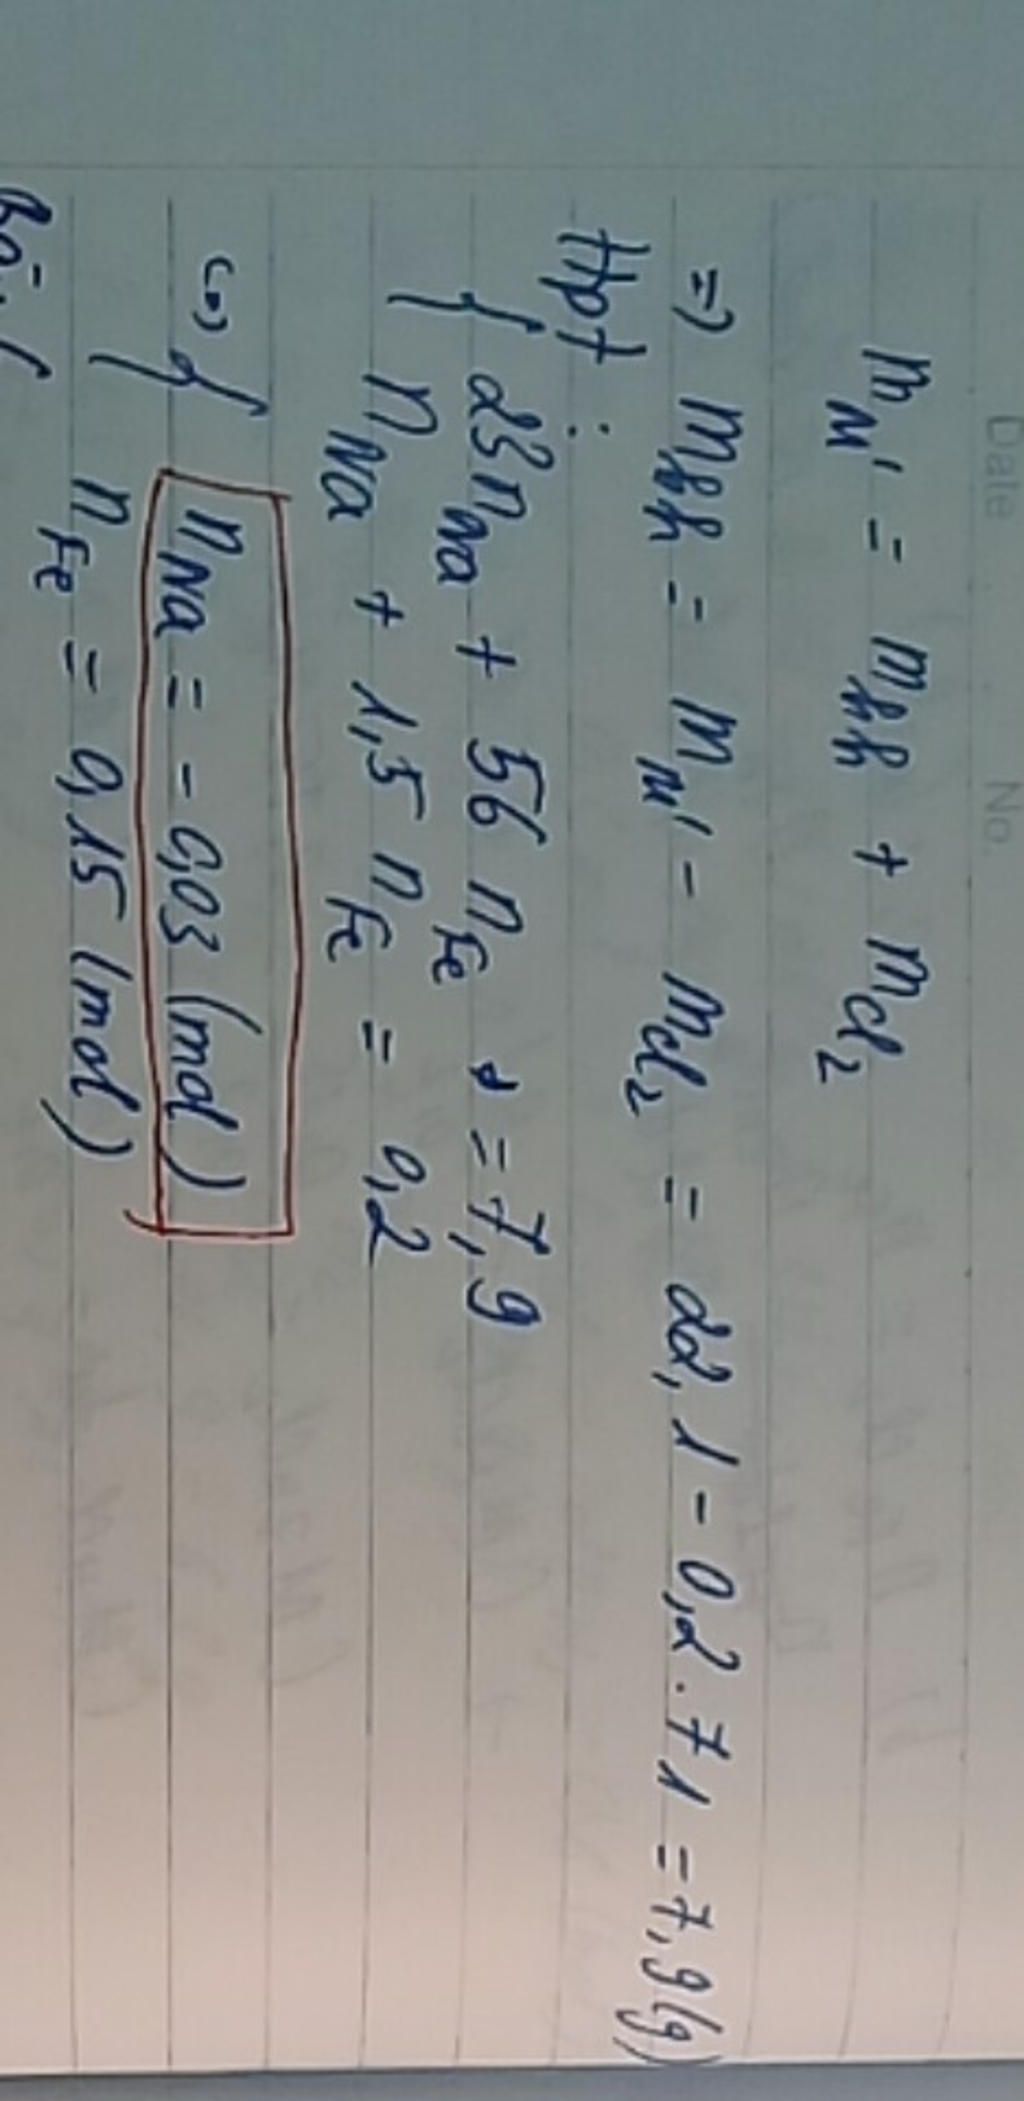 Date No.
m_M' = m_hh + m_Cl₂
=> m_hh = m_M' - m_Cl₂ = 22,1 - 0,2 . 71 = 7,9 (g)
Hpt :
{ 23 n_Na + 56 n_Fe = 7,9
n_Na + 1,5 n_Fe = 0,2
<=> { n_Na = - 0,03 (mol)
n_Fe = 0,15 (mol)